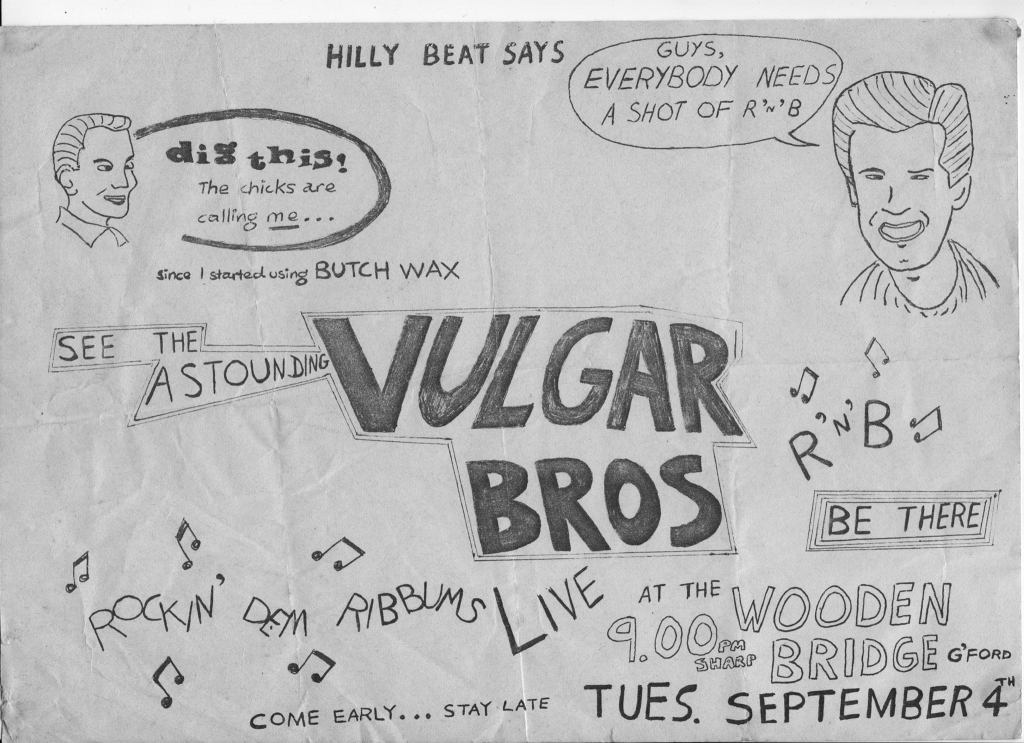 HILLY BEAT SAYS
GUYS,
EVERYBODY NEEDS
A SHOT OF R'N'B
dig this!
The chicks are
calling me...
since I started using BUTCH WAX
SEE THE
ASTOUNDING
VULGAR
BROS
R'N'B
BE THERE
ROCKIN' DEM RIBBUMS
LIVE
AT THE
WOODEN
BRIDGE G'FORD
9.00PM
SHARP
TUES. SEPTEMBER 4TH
COME EARLY... STAY LATE